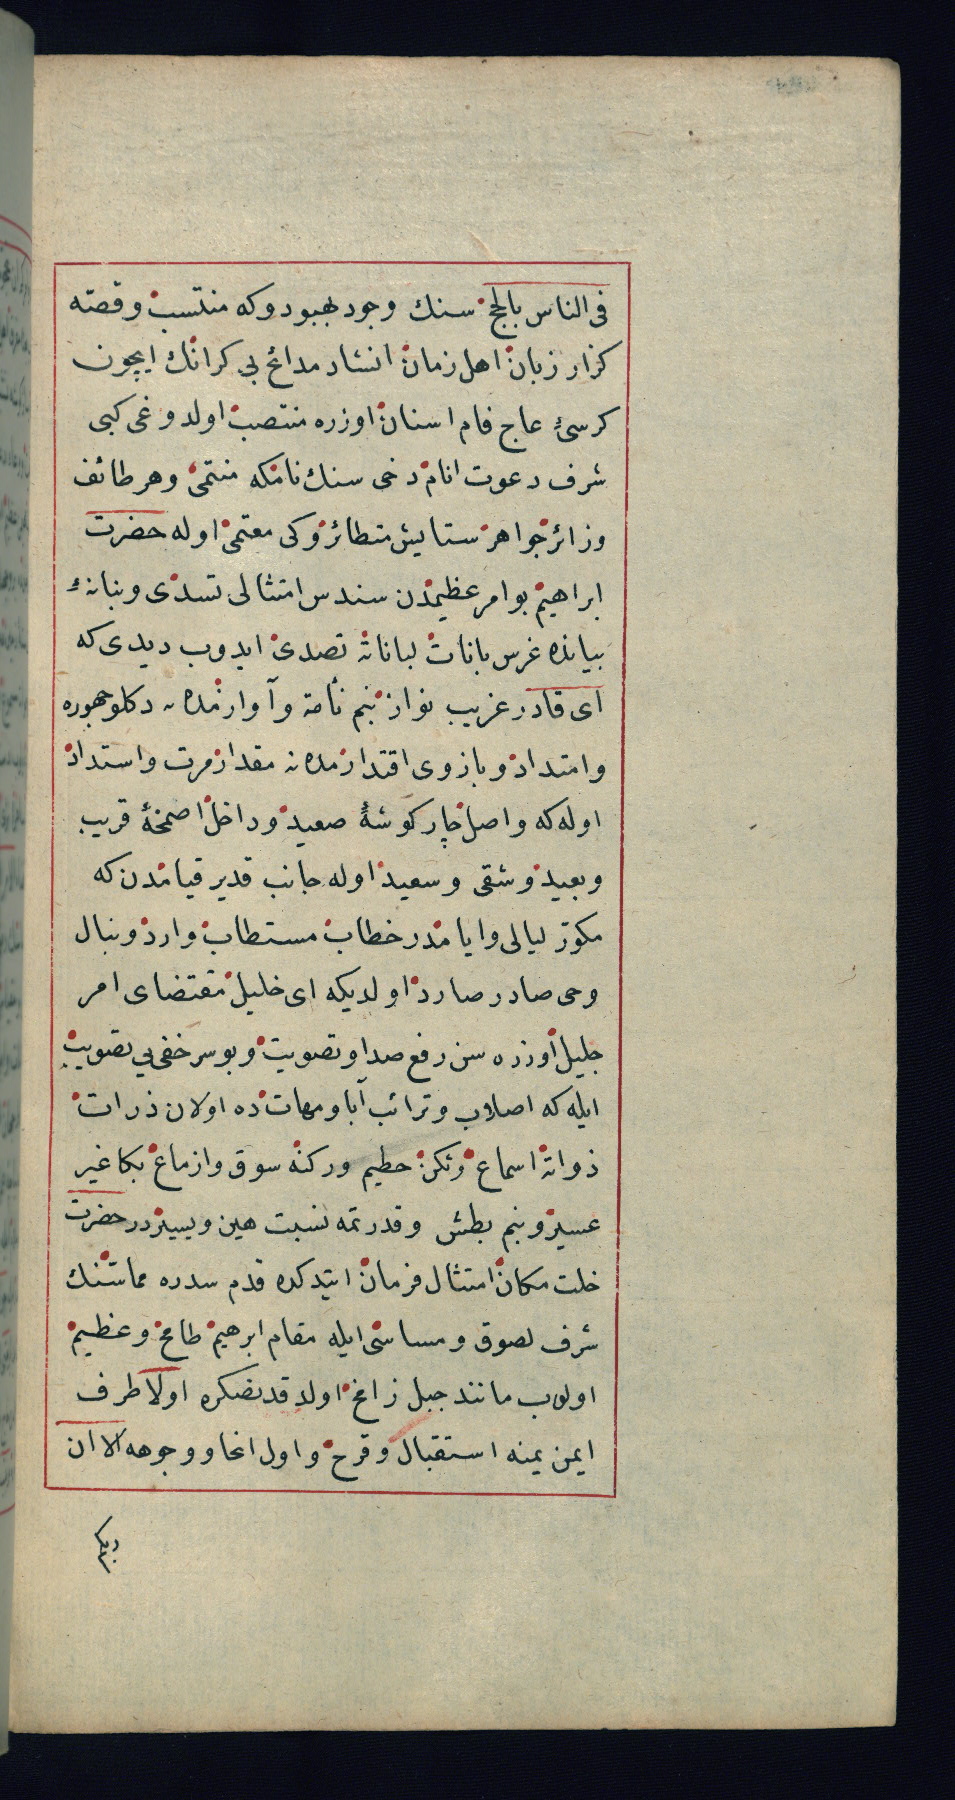 فى الناس بالحج سنك وجود بهبودوكه منتسب وقصّه
كزار زبان اهل زمان انشاد مدائح بى كرانك ايچون
كرسئ عاج فام اسنان اوزره منتصب اولدوغى كبى
شرف دعوت انام دخى سنك نامكه منتمى وهر طائف
وزائر جواهر ستايش متطائروكى معتمى اوله حضرت
ابراهيم بو امر عظيمدن سندس امتثالى تسدى وبنانهٔ
بيانده غرس بانات لبانات تصدى ايدوب ديدى كه
اى قادر غريب نواز بنم نأمه وآوازمده نه دكلو جهوره
وامتداد وبازوى اقتدارمده نه مقدار مرت واستداد
اوله كه واصل چار كوشهٔ صعيد وداخل اصمخهٔ قريب
وبعيد وشقى وسعيد اوله جانب قدير قيامدن كه
مكوّر ليالى وايامدر خطاب مستطاب وارد ونبال
وحى صادر صارد اولديكه اى خليل مقتضاى امر
جليل اوزره سن رفع صدا وتصويت وبو سر خفى يى تصويب
ايله كه اصلاب وترائب آبا ومهات ده اولان ذرات
ذواته اسماع وتكن حطيم وركنه سوق وازماع بكا غير
عسير وبنم بطش وقدرتمه نسبت هين ويسيردر حضرت
خلت مكان امتثال فرمان ايتدكده قدم سدره مماستنك
شرف لصوق ومساسى ايله مقام ابرهيم طامح وعظيم
اولوب مانند جبل زامخ اولدقدنصكره اولا طرف
ايمن يمنه استقبال وقرح واول انحا ووجوهه الا ان